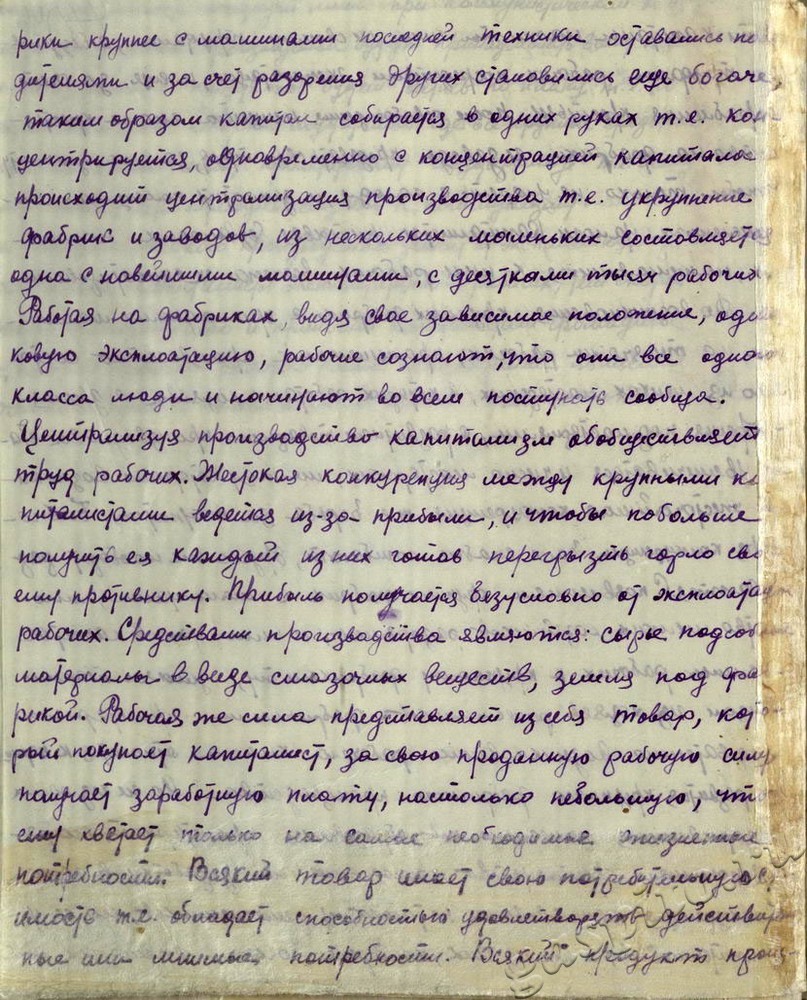 рики крупнее с машинами последней техники оставались по
дителями и за счет разорения других становились еще богаче
таким образом капитал собирается в одних руках т.е. кон
центрируется, одновременно с концентрацией капитала
происходит централизация производства т.е. укрупнение
фабрик и заводов, из нескольких маленьких составляется
одна с новейшими машинами, с десятками тысяч рабочих.
Работая на фабриках, видя свое зависимое положение, оди
ковую эксплоатацию, рабочие сознают, что они все одного
класса люди и начинают во всем поступать сообща.
Централизуя производство капитализм обобществляет
труд рабочих. Жестокая конкуренция между крупными ка
питалистами ведется из-за прибыли, и чтобы побольше
получить ея каждый из них готов перегрызть горло сво
ему противнику. Прибыль получается безусловно от эксплоатации
рабочих. Средствами производства являются: сырье подсобные
материалы в виде смазочных веществ, земля под фаб
рикой. Рабочая же сила представляет из себя товар, кото-
рый покупает капиталист, за свою проданную рабочую силу
получает заработную плату, настолько небольшую, что
ему хватает только на самые необходимые жизненные
потребности. Всякий товар имеет свою потребительную с
имость т.е. обладает способностью удовлетворять действитель
ные или мнимые потребности. Всякий продукт произ-